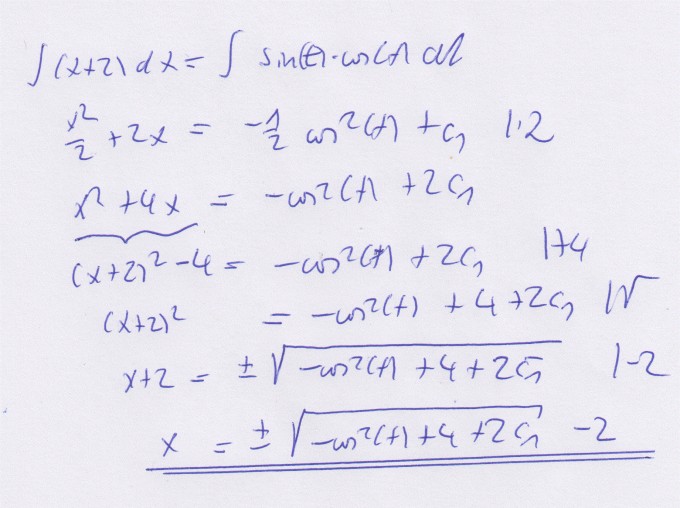 ∫(x+2) dx = ∫ sin(t)·cos(t) dt
x²/2 + 2x = -1/2 cos²(t) + C₁ |·2
x² + 4x = -cos²(t) + 2C₁
(x+2)² - 4 = -cos²(t) + 2C₁ |+4
(x+2)² = -cos²(t) + 4 + 2C₁ |√
x+2 = ±√(-cos²(t) + 4 + 2C₁) |-2
x = ±√(-cos²(t) + 4 + 2C₁) - 2